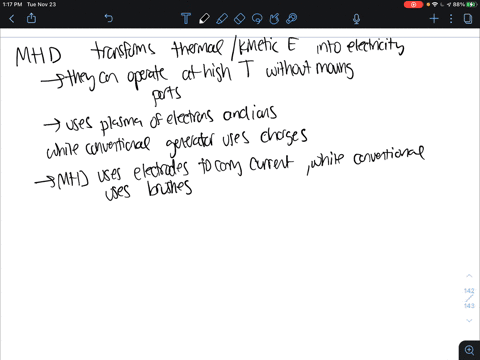 1:17 PM Tue Nov 23
88%
MHD transforms thermal/kinetic E into electricity
→ they can operate at high T without moving
parts
→ uses plasma of electrons and ions
while conventional generator uses charges
→ MHD uses electrodes to carry current, while conventional
uses brushes
142
143